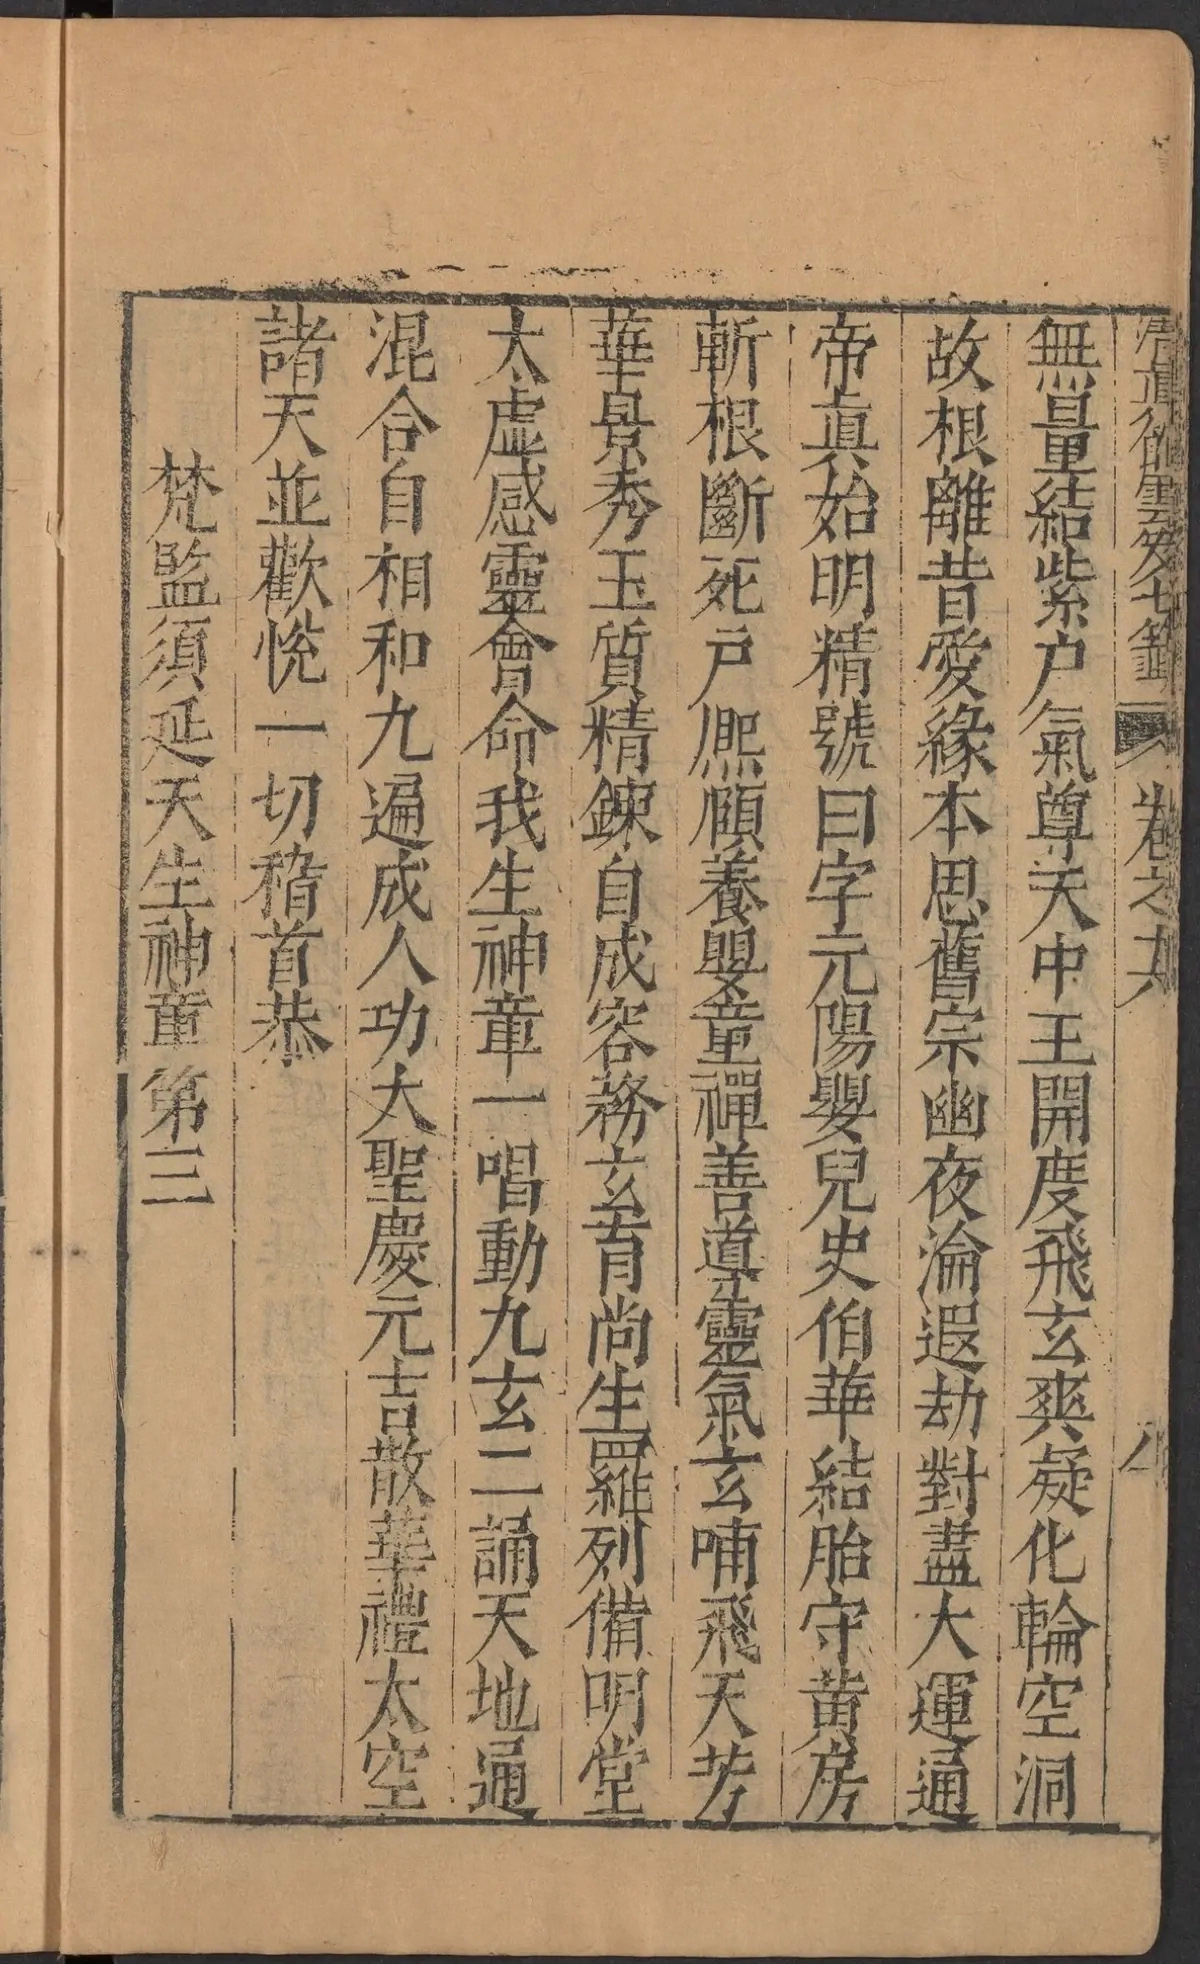 清真館雲笈七籤 卷之十六 八
無量結紫户氣尊天中王開度飛玄爽凝化輪空洞
故根離昔愛緣本思舊宗幽夜淪遐劫對盡大運通
帝真始明精號曰字元陽嬰兒史伯華結胎守黄房
斬根斷死户熈頤養嬰童禪善導靈氣玄哺飛天芳
華景秀玉質精鍊自成容務玄育尚生羅列備明堂
太虛感靈會命我生神章一唱動九玄二誦天地通
混合自相和九遍成人功大聖慶元吉散華禮太空
諸天並歡悅一切稽首恭
梵監須延天生神章第三